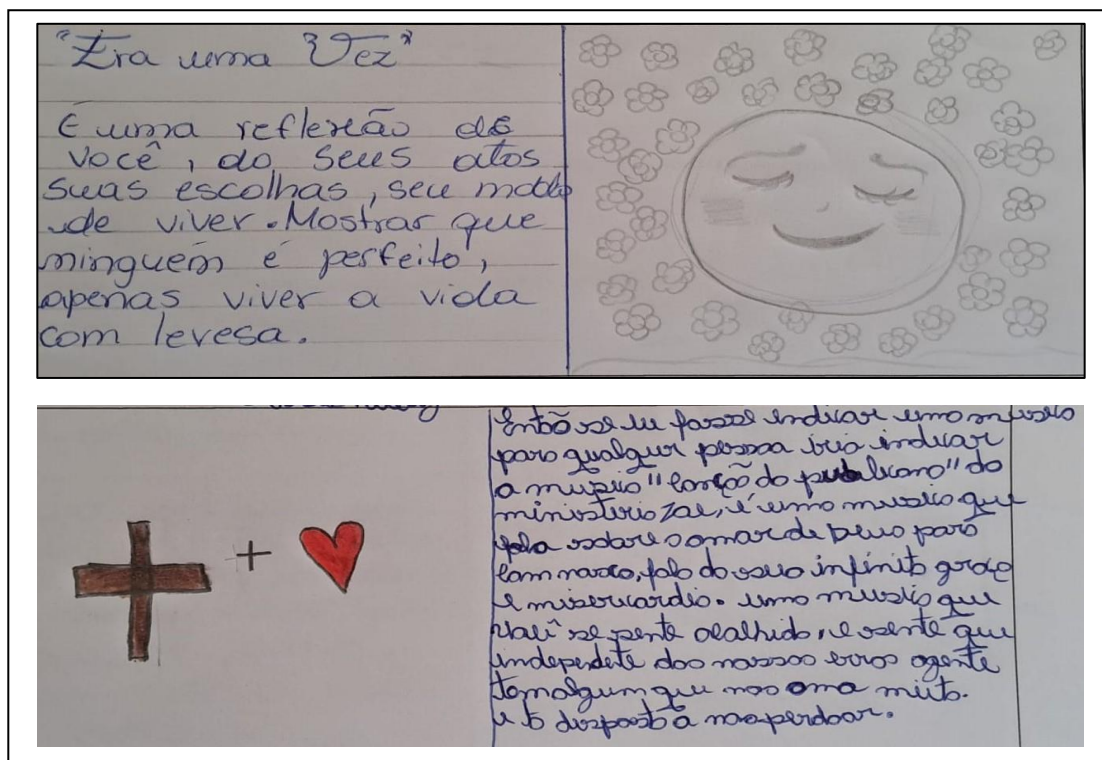 "Era uma Vez"
É uma reflexão de
você, do seus atos
suas escolhas, seu modo
de viver. Mostrar que
ninguém é perfeito,
apenas viver a vida
com levesa.
Então se eu fosse indicar uma musica
para qualquer pessoa iria indicar
a musica "canção do publicano" do
ministerio Zae, é uma musica que
fala sobre o amor de Deus para
com nosco, fala do seu infinito graça
e misericordio. uma musica que
você se sente acolhido, e sente que
independete dos nossos erros agente
tem algum que nos ama muito.
e tá disposto a nos perdoar.